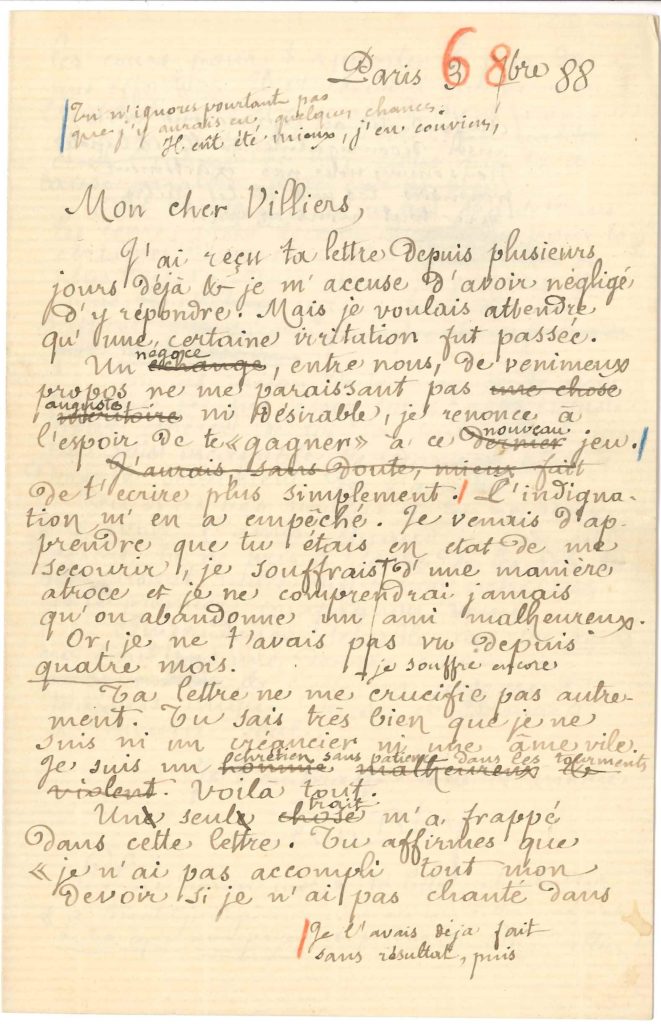 68
Paris 3 9bre 88
Tu n'ignores pourtant pas
que j'y aurais eu quelques chances.
Il eût été mieux, j'en conviens,
Mon cher Villiers,
J'ai reçu ta lettre depuis plusieurs
jours déjà & je m'accuse d'avoir négligé
d'y répondre. Mais je voulais attendre
qu'une certaine irritation fut passée.
négoce
Un échange, entre nous, de venimeux
propos ne me paraissant pas une chose
auguste
méritoire ni désirable, je renonce à
nouveau
l'espoir de te «gagner» à ce dernier jeu.
J'aurais sans doute, mieux fait
de t'écrire plus simplement. L'indigna-
tion m'en a empêché. Je venais d'ap-
prendre que tu étais en état de me
secourir, je souffrais d'une manière
atroce et je ne comprendrai jamais
qu'on abandonne un ami malheureux.
Or, je ne t'avais pas vu depuis
quatre mois.
+ je souffre encore
Ta lettre ne me crucifie pas autre-
ment. Tu sais très bien que je ne
suis ni un créancier ni une âme vile.
chrétien sans patience dans les tourments
Je suis un homme malheureux &
violent. Voilà tout.
trait
Une seule chose m'a frappé
dans cette lettre. Tu affirmes que
«je n'ai pas accompli tout mon
devoir si je n'ai pas chanté dans
Je l'avais déja fait
sans résultat, puis